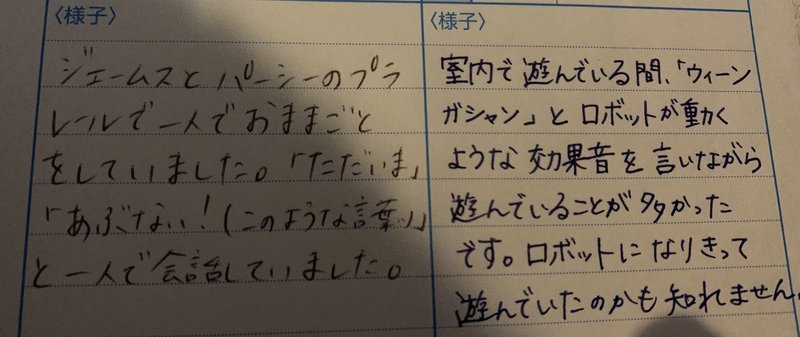 〈様子〉
ジェームスとパーシーのプラ
レールで一人でおままごと
をしていました。「ただいま」
「あぶない！(このような言葉ッ)」
と一人で会話していました。
〈様子〉
室内で遊んでいる間、「ウィーン
ガシャン」とロボットが動く
ような効果音を言いながら
遊んでいることが多かった
です。ロボットになりきって
遊んでいたのかも知れません。